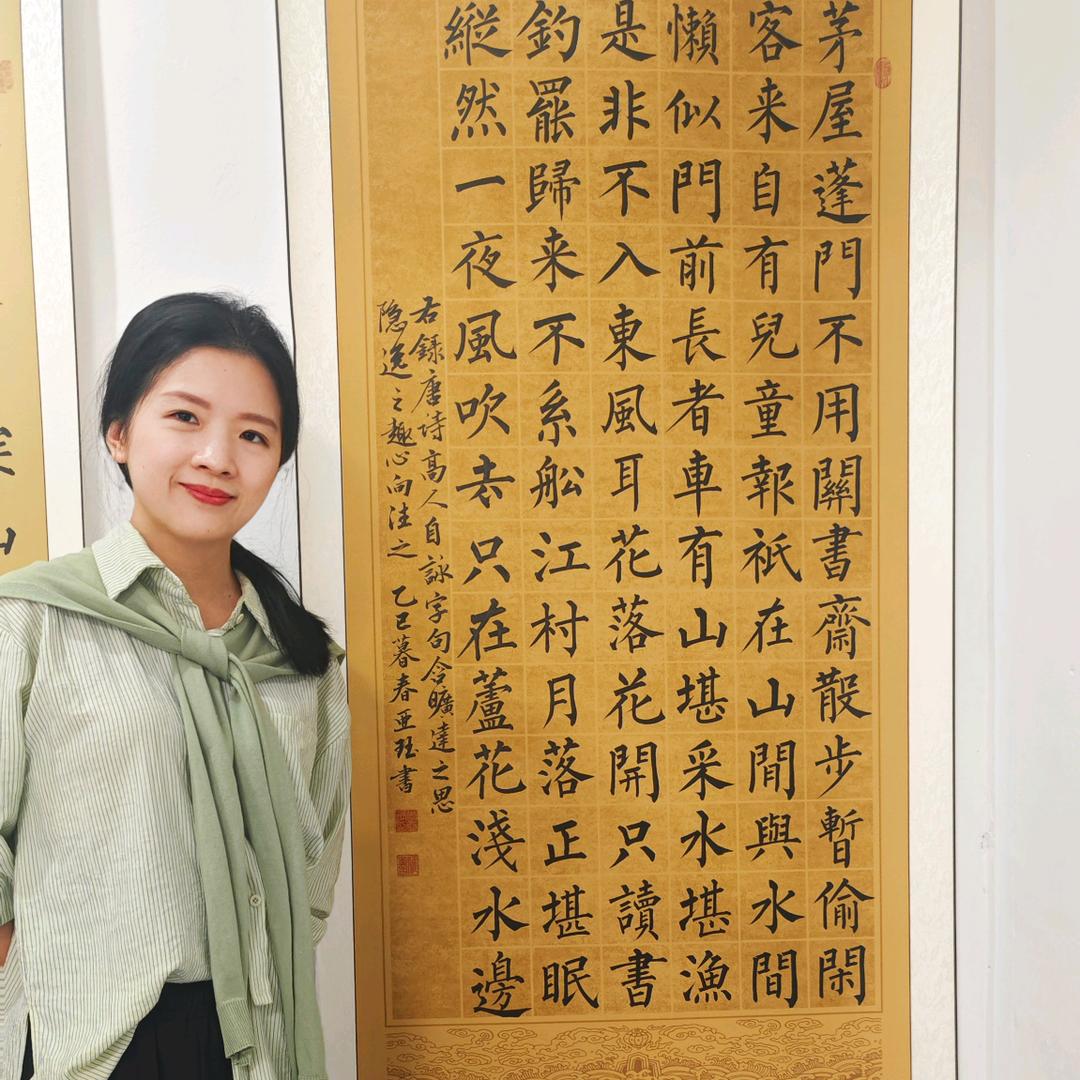 茅屋蓬門不用關書齋散步暫偷閑
客来自有兒童報祇在山間與水間
懶似門前長者車有山堪采水堪漁
是非不入東風耳花落花開只讀書
釣罷歸来不系船江村月落正堪眠
縱然一夜風吹去只在蘆花淺水邊
右録唐詩高人自詠字句令曠達之思
隐逸之趣心向往之 乙巳暮春亞珏書